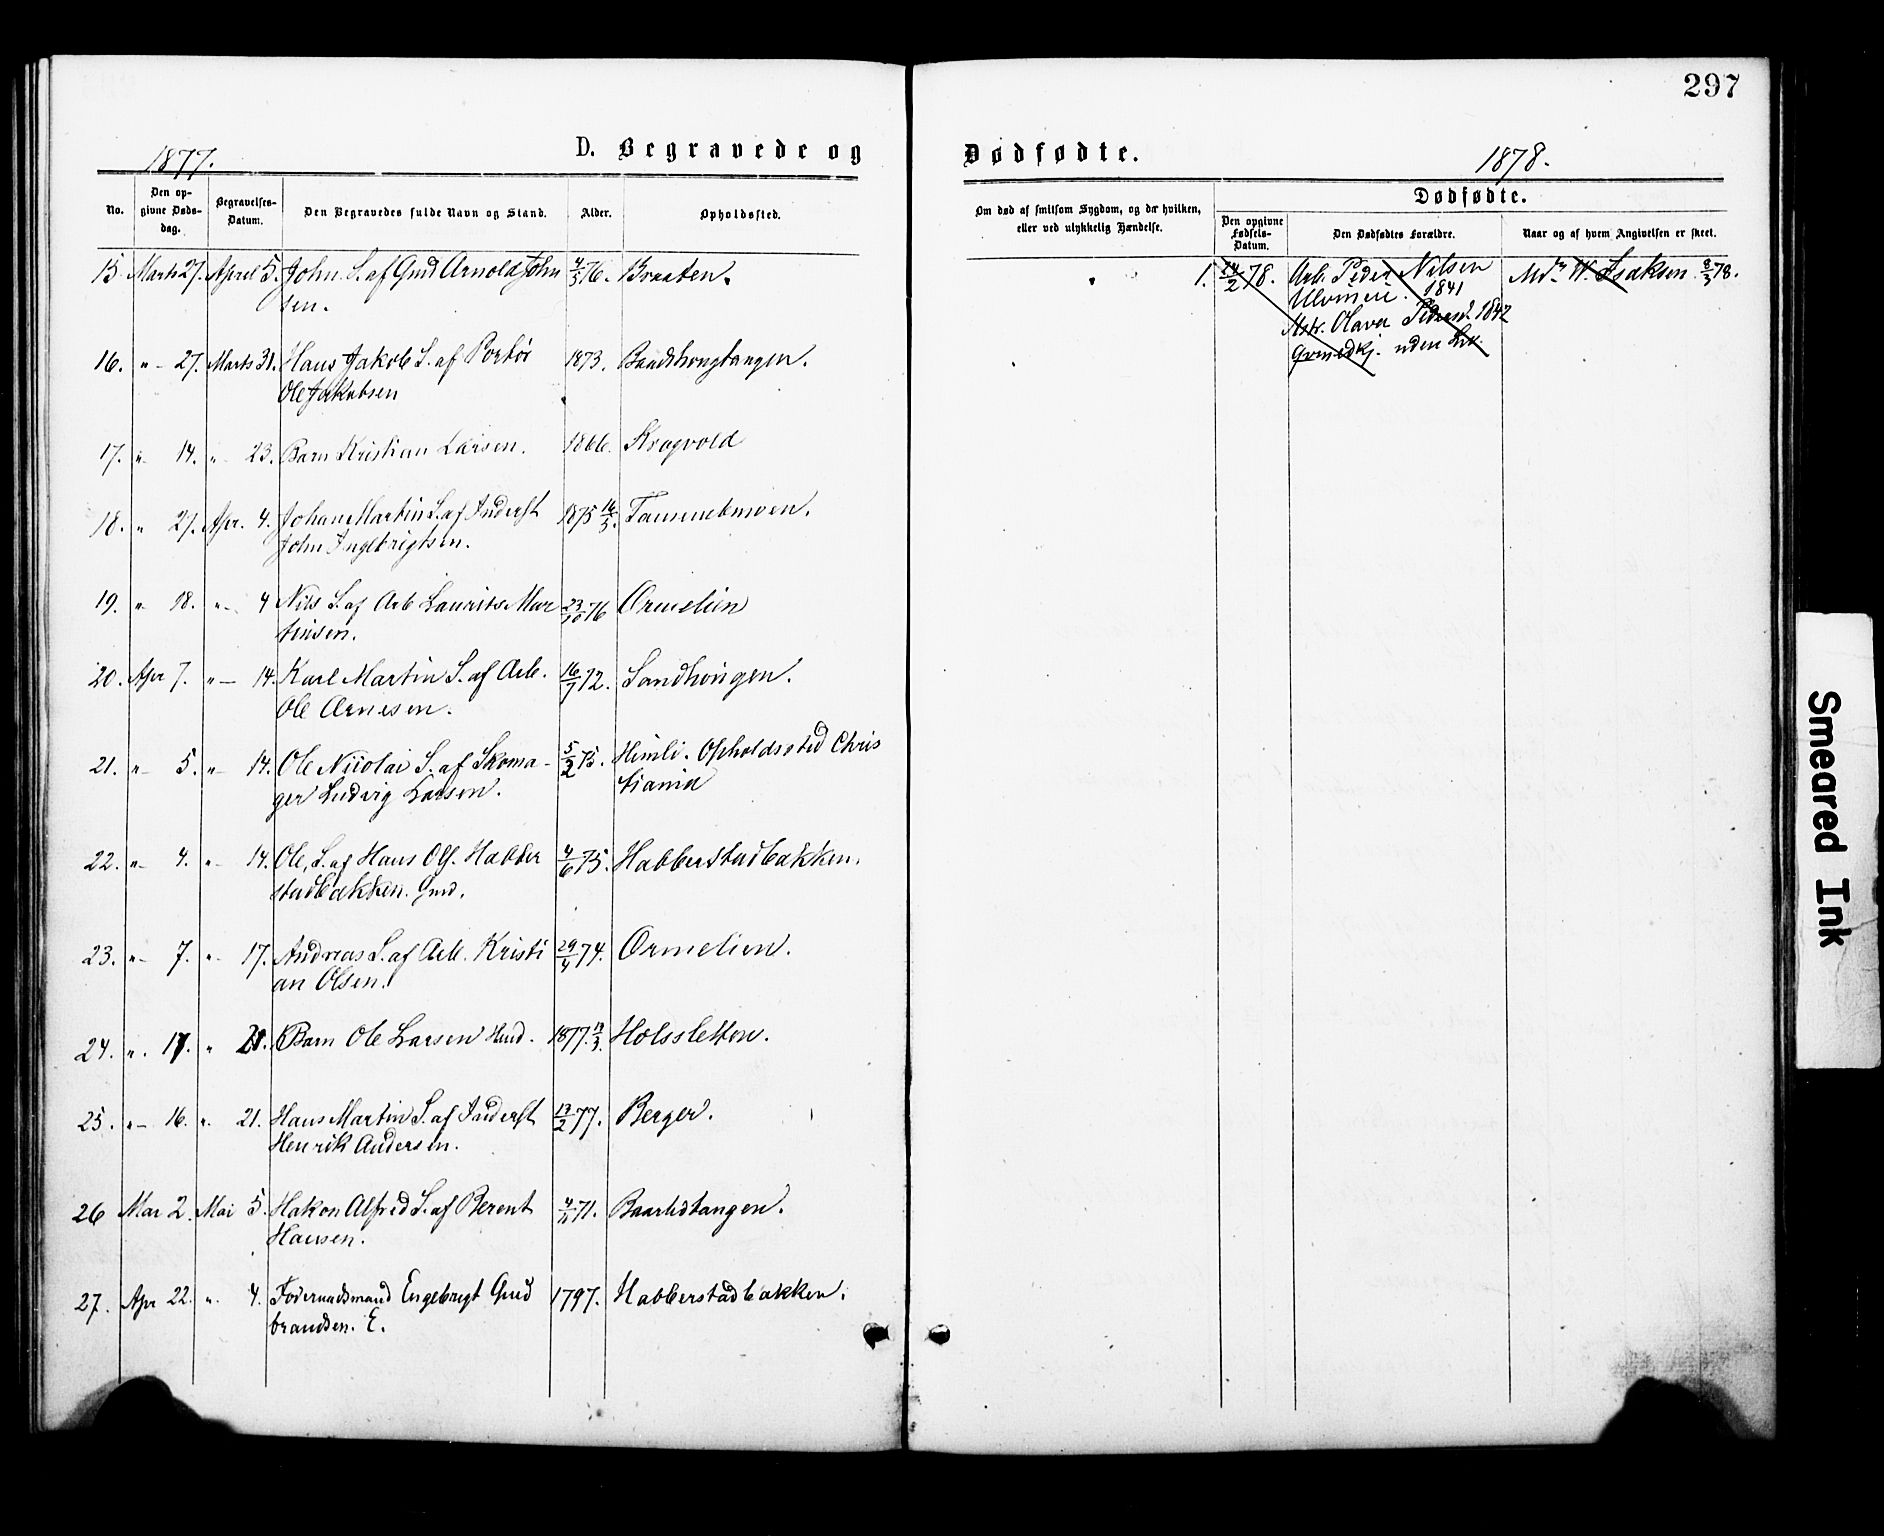 297
1877.
D. Begravede og
Dødfødte.
1878.
No.
Den op-
givne Døds-
dag.
Begravelses-
Datum.
Den Begravedes fulde Navn og Stand.
Alder.
Opholdssted.
Om død af smitsom Sygdom, og da hvilken,
eller ved ulykkelig Hændelse.
Dødfødte.
Den opgivne
Fødsels-
Datum.
Den Dødfødtes Forældre.
Naar og af hvem Angivelsen er skeet.
15. Marts 27. April 5. John. S. af Gmd Arnold John 4/5 76. Braaten.
sen.
16. " 27. Marts 31. Hans Jakob S. af
Ole Jakobsen 1873.
17. " 14. " 23. Barn Kristian Larsen. 1866. Krogvold
18. " 27. Apr. 4. Johan Martin S. af Inderst 1875
John Ingebrigtsen.
19. " 18. " 4 Nils S. af Arb Laurits Mar 23/10 76 Ormelien
tinsen.
20. Apr 7. " 14. Karl Martin S. af Arb. 16/7 72. Sandhongen.
Ole Arnesen.
21. " 5. " 14. Ole Nicolai S. af Skoma- 5/2 75. Himli. Opholdssted Chris
ger Ludvig Larsen. tiania
22. " 4. " 14. Ole, S. af Hans Ols. Habber 4/6 75. Habberstadbakken.
stadbakken. Gmd.
23. " 7. " 17. Andreas S. af Arb. Kristi 29/4 74. Ormelien.
an Olsen.
24. " 17. " 21. Barn Ole Larsen Hmd. 1877. 19/3. Holssletten.
25. " 16. " 21. Hans Martin S. af Inderst 13/2 77. Berger.
Henrik Andersen.
26 Mar 2. Mai 5. Hakon Alfred S. af Berent 4/11 71. Baarlidtangen.
Hansen.
27. Apr 22. " 4. Føderaadsmand Engebrigt Gud 1797. Habberstadbakken.
brandsen. E.
1. 14/2 78. Arb. Peder Nilsen Mdm W. Isaksen 8/3 78.
1841
Mstr. Olava Pedersd. 1842
uden Liv.
Smeared Ink